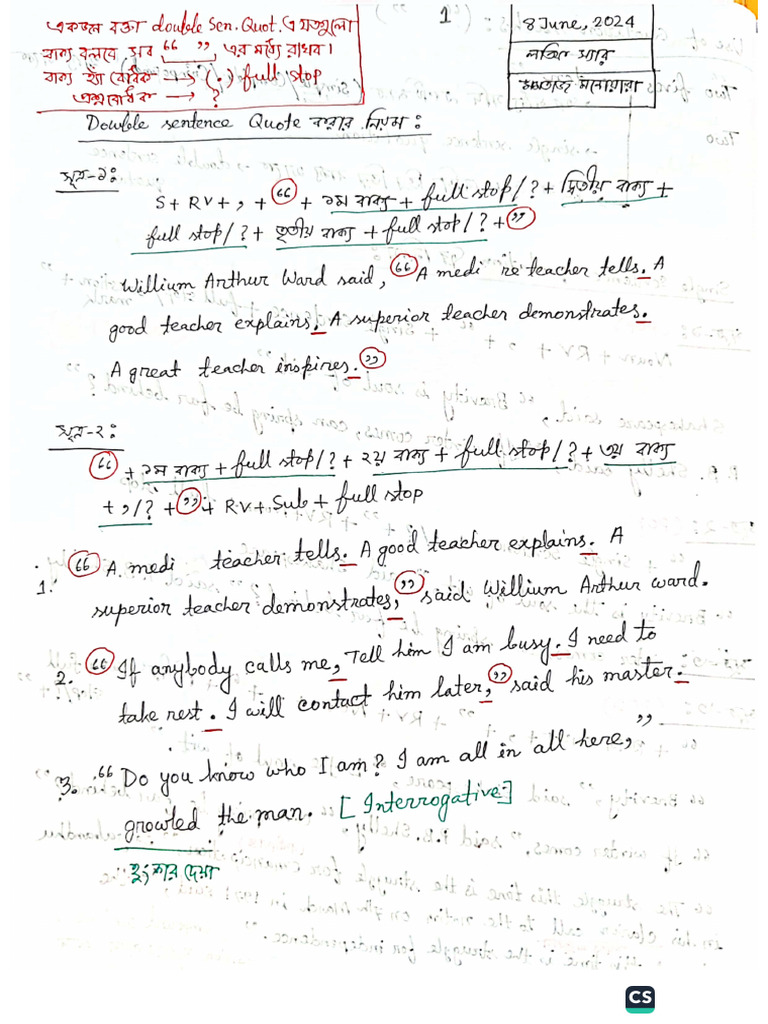 একজন বক্তা double Sen. Quot. এ যতগুলো
বাক্য বলবে সব “ ” এর মধ্যে রাখব।
বাক্য হ্যাঁ বোধক → (.) full stop
প্রশ্নবোধক → ?
1
8 June, 2024
লতিফ স্যার
মমতাজ মনোয়ারা
Double sentence Quote করার নিয়ম:
সূত্র-১:
S + RV + , + “ + ১ম বাক্য + full stop/? + দ্বিতীয় বাক্য +
full stop/? + তৃতীয় বাক্য + full stop/? + ”
Willium Arthur Ward said, “A medi re teacher tells. A
good teacher explains. A superior teacher demonstrates.
A great teacher inspires.”
সূত্র-২:
“ + ১ম বাক্য + full stop/? + ২য় বাক্য + full stop/? + ৩য় বাক্য
+ ,/? + ” + RV + Sub + full stop
1. “A medi teacher tells. A good teacher explains. A
superior teacher demonstrates,” said Willium Arthur ward.
2. “If anybody calls me, Tell him I am busy. I need to
take rest. I will contact him later,” said his master.
3. “Do you know who I am? I am all in all here,”
growled the man. [Interrogative]
হুংকার দেয়া
CS